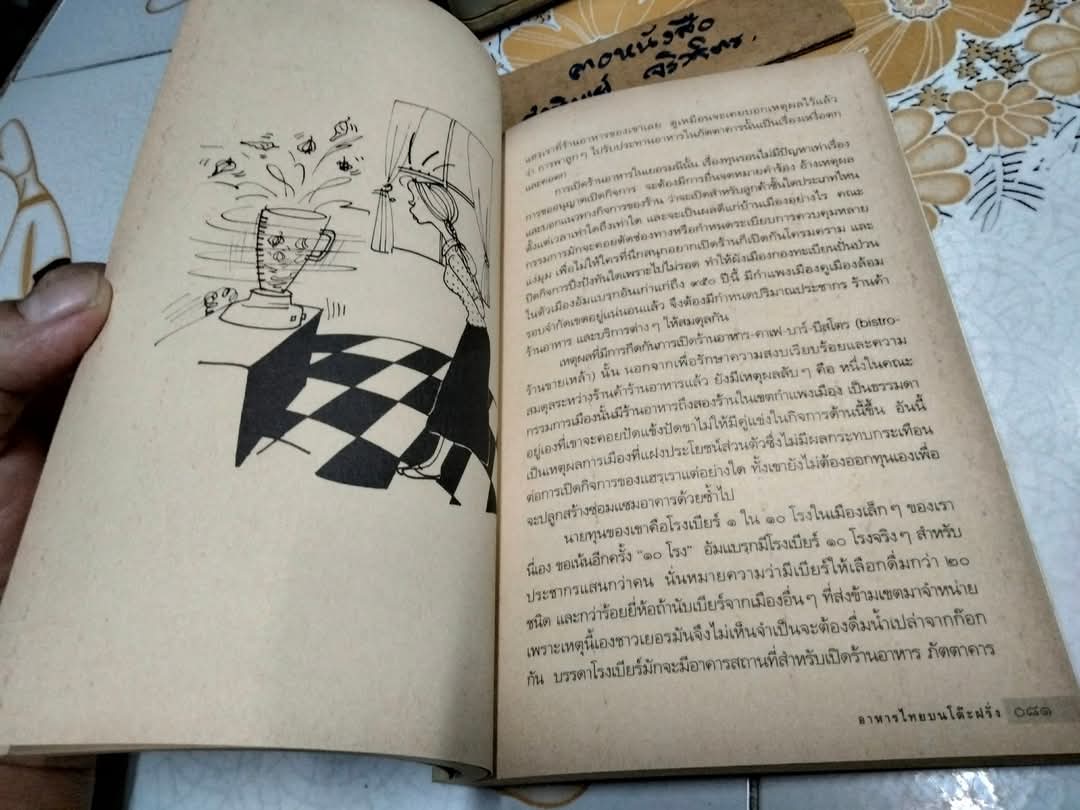 ฅอหนังสือ
แฮร์เราที่ร้านอาหารของเขาเลย ดูเหมือนจะเคยบอกเหตุผลไว้แล้ว
ว่า การพาลูกๆ ไปรับประทานอาหารในภัตตาคารนั้นเป็นเรื่องเหรือตก
และคอตก
การเปิดร้านอาหารในเยอรมนีนั้น เรื่องทุนรอนไม่มีปัญหาเท่าเรื่อง
การขออนุญาตเปิดกิจการ จะต้องมีการยื่นจดหมายคำร้อง อ้างเหตุผล
และบอกแนวทางกิจการของร้าน ว่าจะเปิดสำหรับลูกค้าชั้นใดประเภทไหน
ตั้งแต่เวลาเท่าใดถึงเท่าใด และจะเป็นผลดีแก่บ้านเมืองอย่างไร คณะ
กรรมการมักจะคอยตัดช่องทางหรือกำหนดระเบียบการควบคุมหลาย
แง่มุม เพื่อไม่ให้ใครที่นึกสนุกอยากเปิดร้านก็เปิดกันโครมคราม และ
ปิดกิจการปึงปังทันใดเพราะไปไม่รอด ทำให้ผังเมืองกองทะเบียนปั่นป่วน
ในตัวเมืองอัมแบรกอันเก่าแก่ถึง ๙๕๐ ปีนี้ มีกำแพงเมืองคูเมืองล้อม
รอบจำกัดเขตอยู่แน่นอนแล้ว จึงต้องมีกำหนดปริมาณประชากร ร้านค้า
ร้านอาหาร และบริการต่างๆ ให้สมดุลกัน
เหตุผลที่มีการกีดกันการเปิดร้านอาหาร-คาเฟ่-บาร์-บิสโตร (bistro-
ร้านขายเหล้า) นั้น นอกจากเพื่อรักษาความสงบเรียบร้อยและความ
สมดุลระหว่างร้านค้าร้านอาหารแล้ว ยังมีเหตุผลลับๆ คือ หนึ่งในคณะ
กรรมการเมืองนั้นมีร้านอาหารถึงสองร้านในเขตกำแพงเมือง เป็นธรรมดา
อยู่เองที่เขาจะคอยปัดแข้งปัดขาไม่ให้มีคู่แข่งในกิจการด้านนี้ขึ้น อันนี้
เป็นเหตุผลการเมืองที่แฝงประโยชน์ส่วนตัวซึ่งไม่มีผลกระทบกระเทือน
ต่อการเปิดกิจการของแฮรเราแต่อย่างใด ทั้งเขายังไม่ต้องออกทุนเองเพื่อ
จะปลูกสร้างซ่อมแซมอาคารด้วยซ้ำไป
นายทุนของเขาคือโรงเบียร์ ๑ ใน ๑๐ โรงในเมืองเล็กๆ ของเรา
นี่เอง ขอเน้นอีกครั้ง "๑๐ โรง" อัมแบรกมีโรงเบียร์ ๑๐ โรงจริงๆ สำหรับ
ประชากรแสนกว่าคน นั่นหมายความว่ามีเบียร์ให้เลือกดื่มกว่า ๒๐
ชนิด และกว่าร้อยยี่ห้อถ้านับเบียร์จากเมืองอื่นๆ ที่ส่งข้ามเขตมาจำหน่าย
เพราะเหตุนี้เองชาวเยอรมันจึงไม่เห็นจำเป็นจะต้องดื่มน้ำเปล่าจากก๊อก
กัน บรรดาโรงเบียร์มักจะมีอาคารสถานที่สำหรับเปิดร้านอาหาร ภัตตาคาร
อาหารไทยบนโต๊ะฝรั่ง ๐๘๑